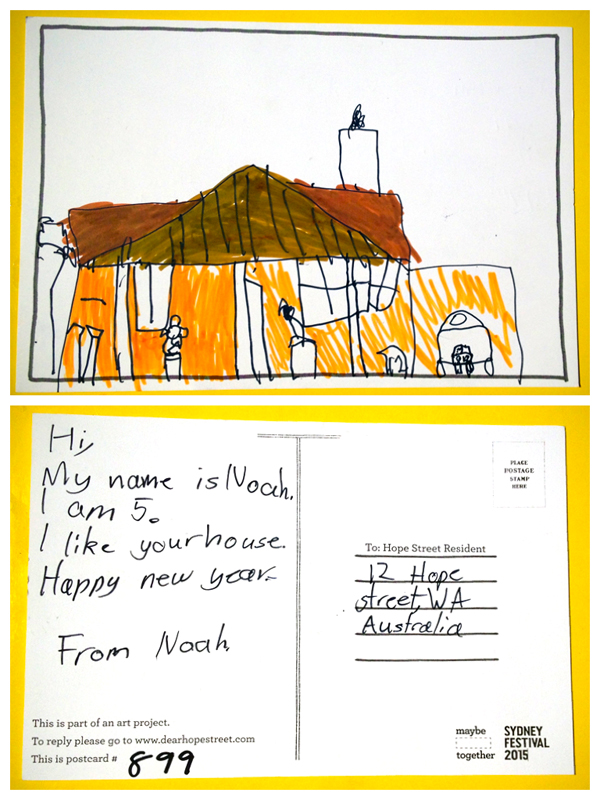 12
Hi,
My name is Noah.
I am 5.
I like your house.
Happy new year.
From Noah
This is part of an art project.
To reply please go to www.dearhopestreet.com
This is postcard # 899
PLACE
POSTAGE
STAMP
HERE
To: Hope Street Resident
12 Hope
street, WA
Australia
maybe
together
SYDNEY
FESTIVAL
2015